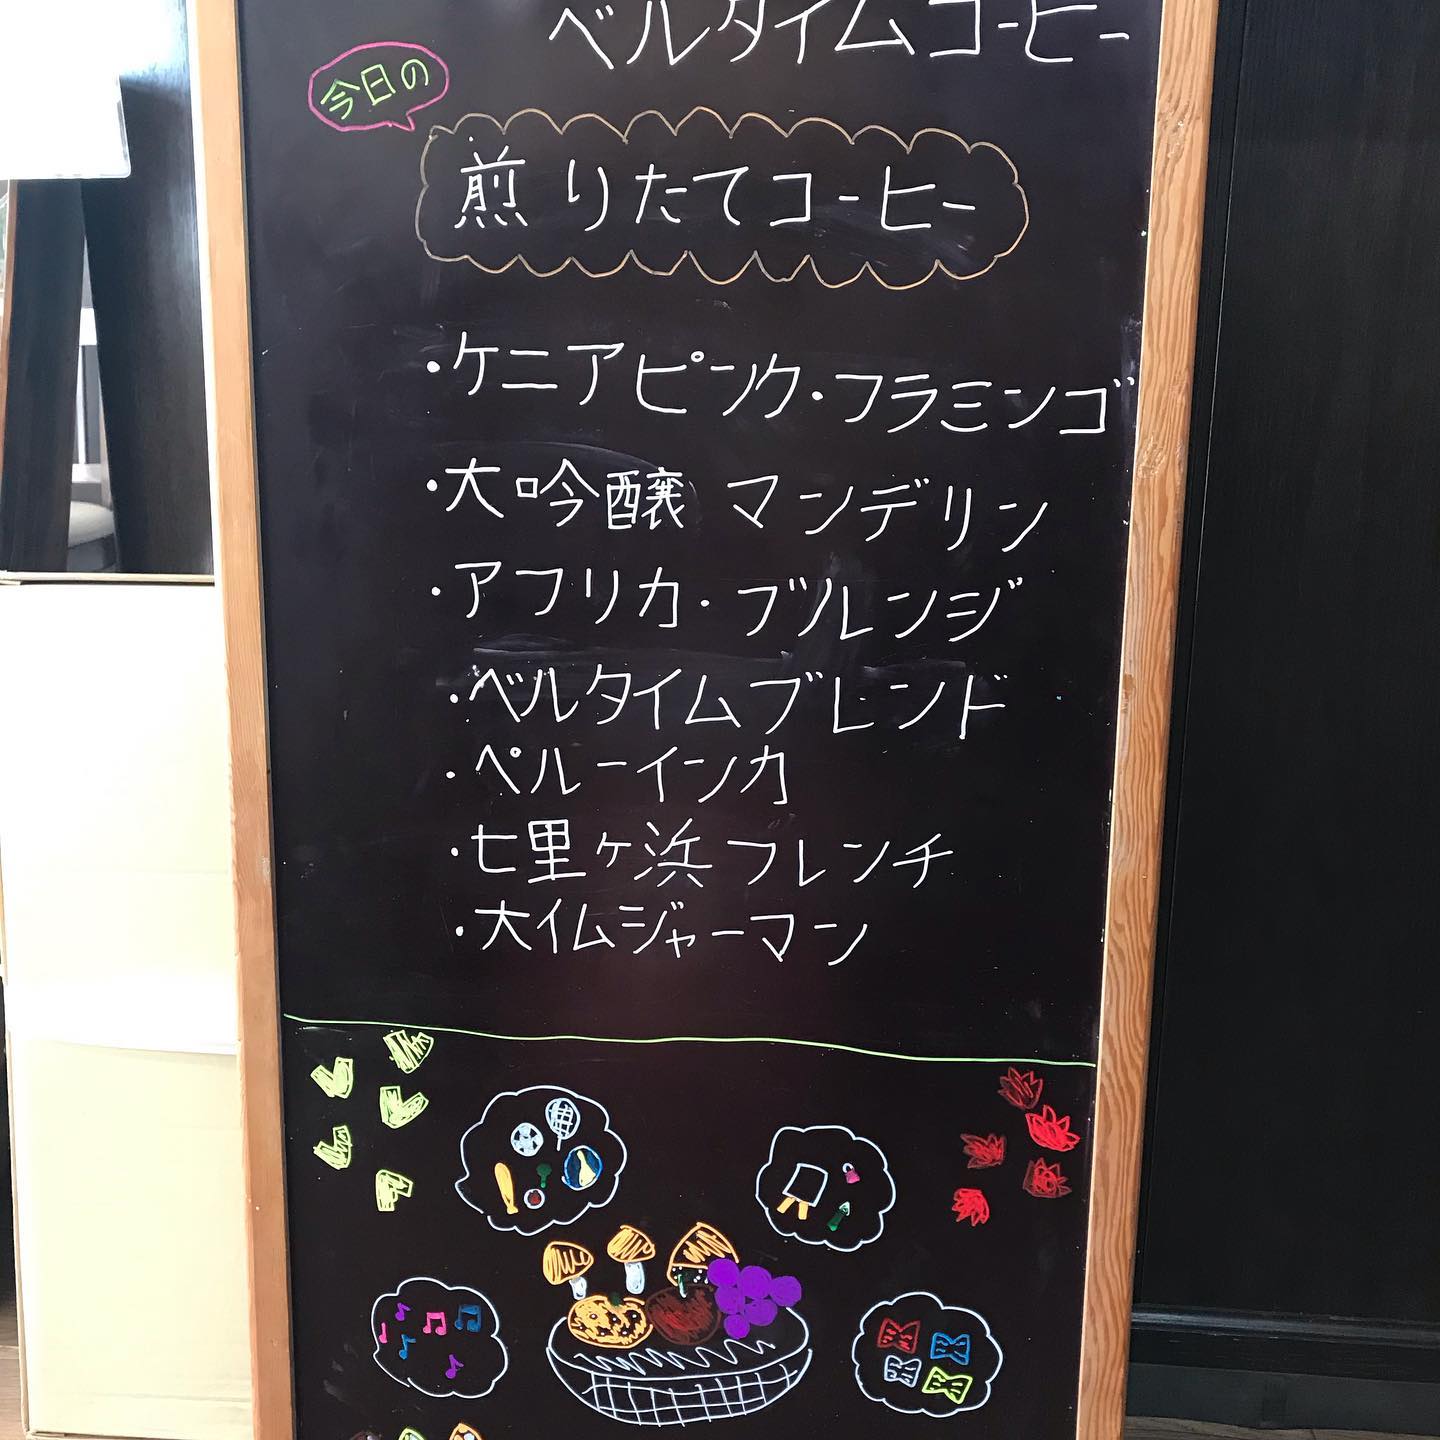 ベルタイムコーヒー
今日の
煎りたてコーヒー
・ケニアピンク・フラミンゴ
・大吟醸 マンデリン
・アフリカ・ブルンジ
・ベルタイムブレンド
・ペルーインカ
・七里ヶ浜フレンチ
・大イムジャーマン